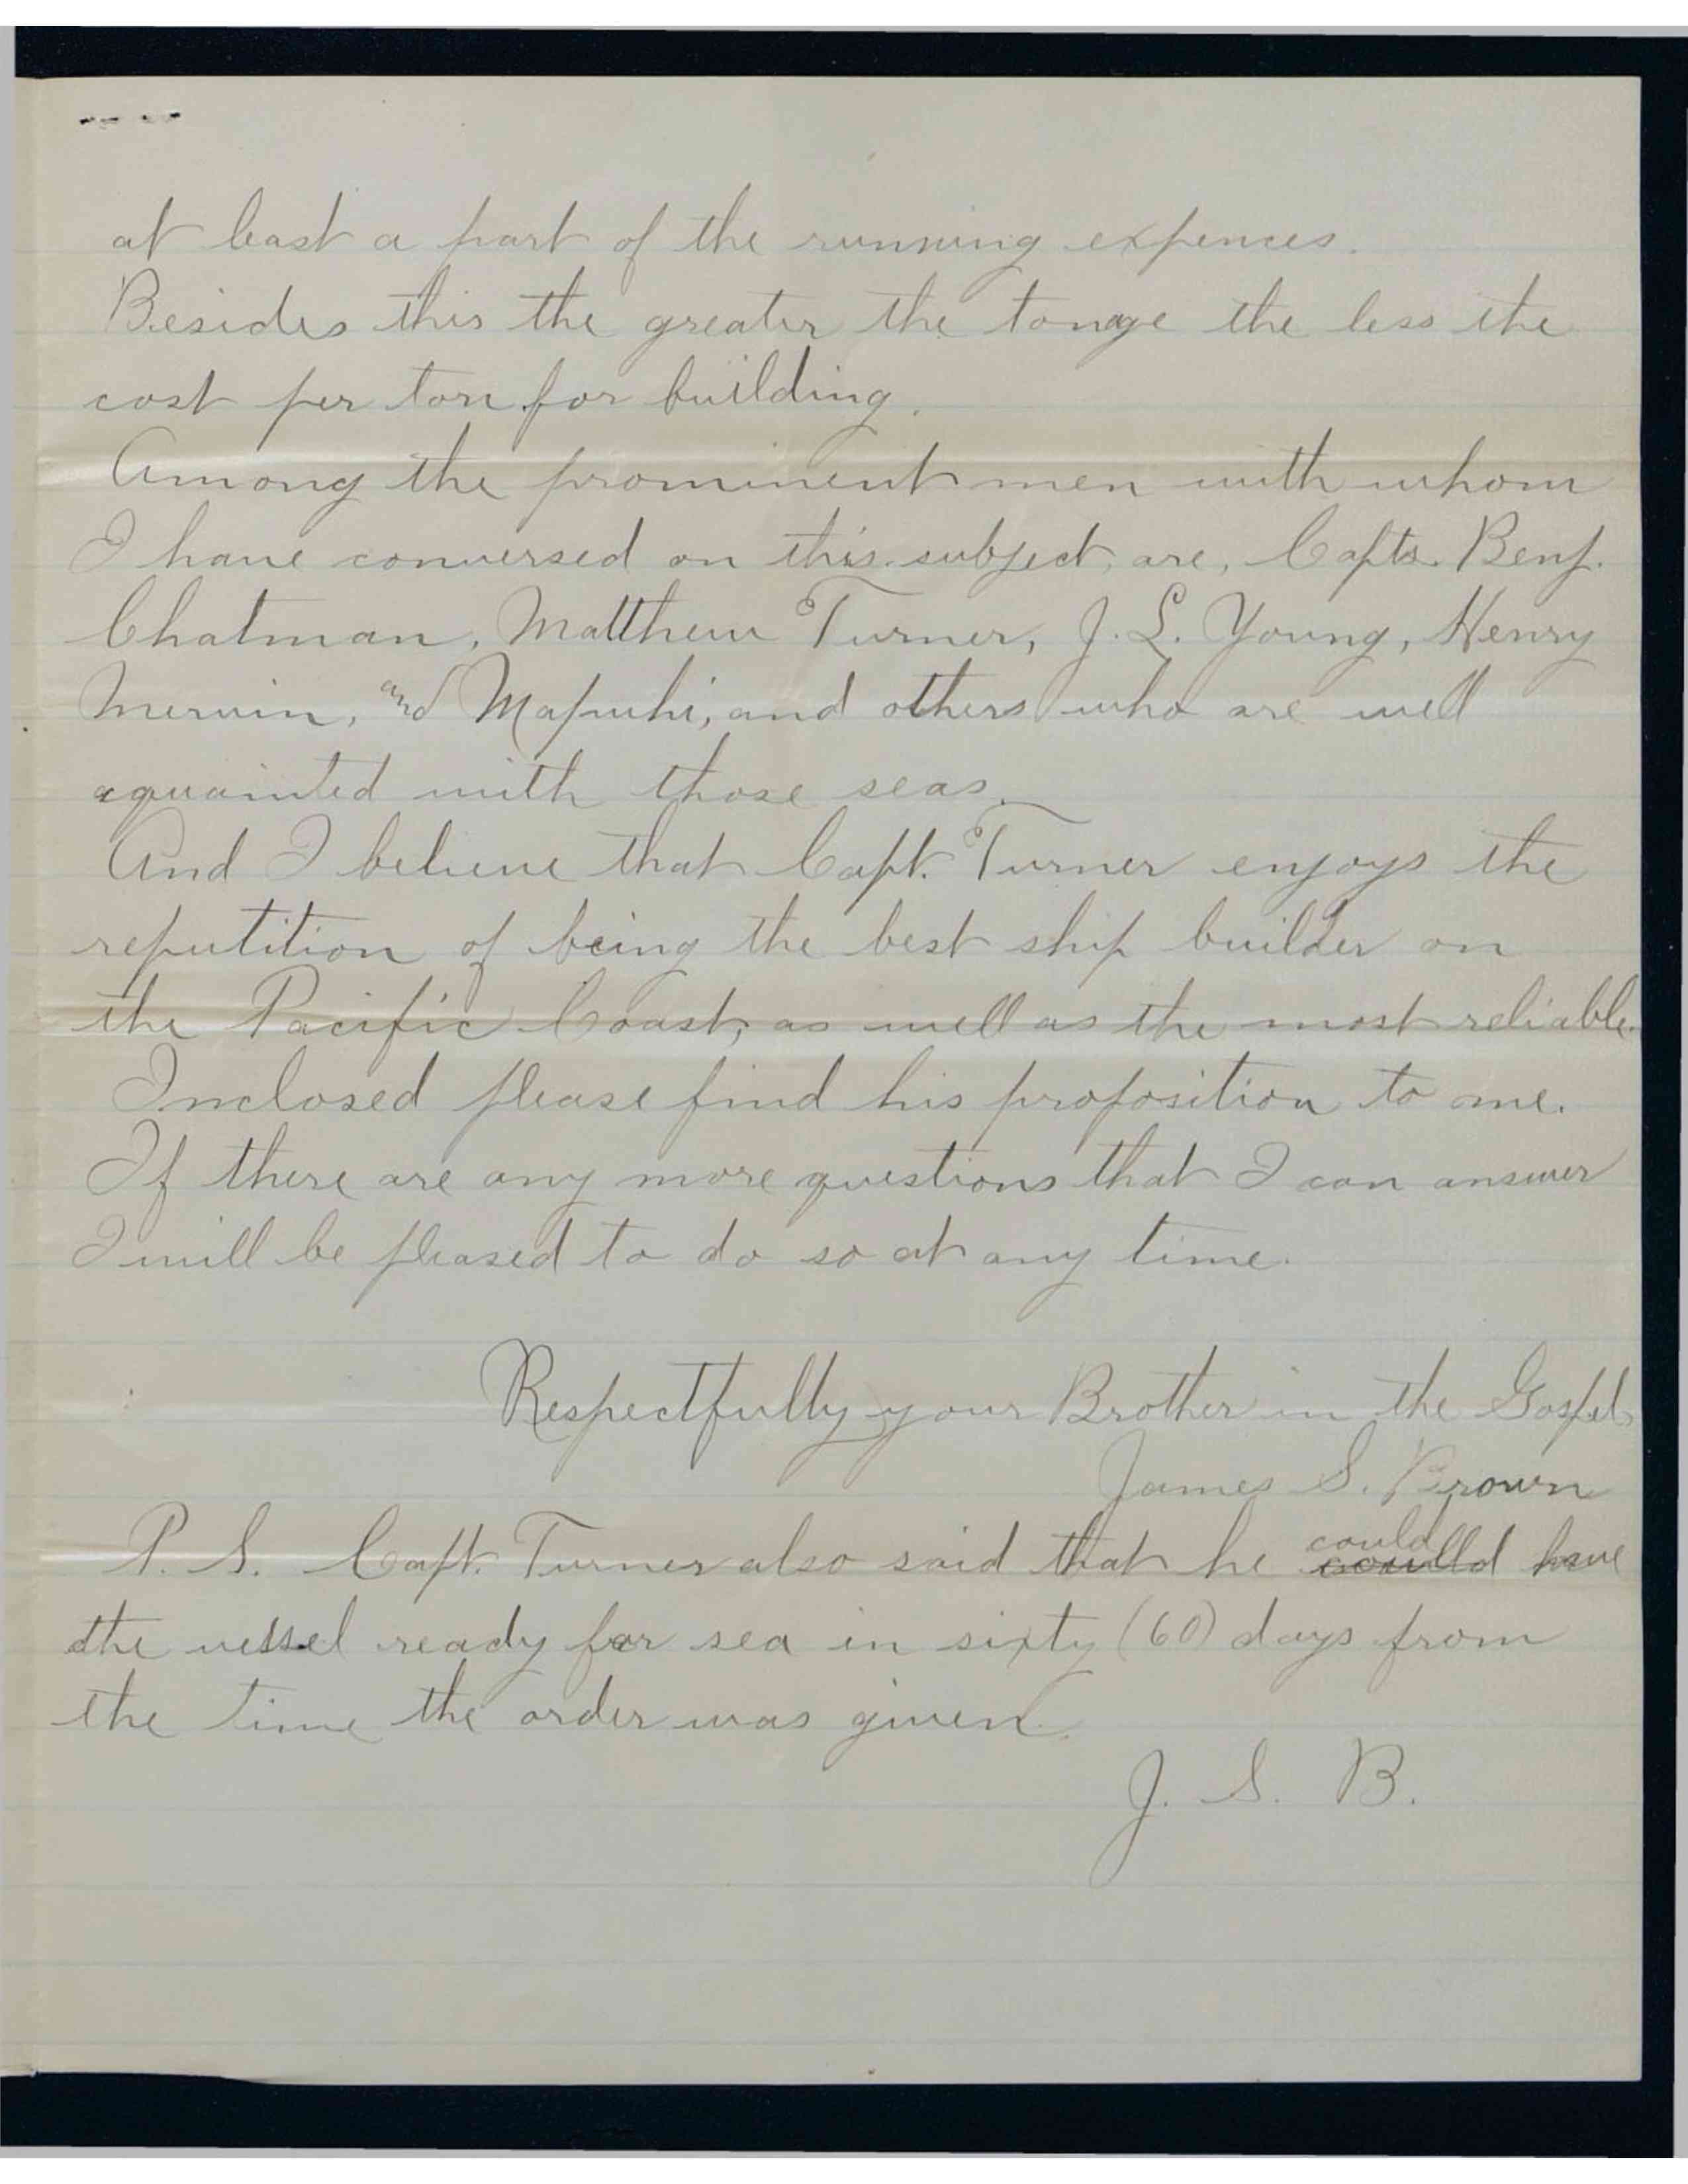 at least a part of the running expences.
Besides this the greater the tonage the less the
cost per ton for building.
Among the prominent men with whom
I have conversed on this subject, are, Capts. Benj.
Chatman, Matthew Turner, J. L. Young, Henry
Mervin, and Mapuhi, and others who are well
aquainted with those seas.
And I believe that Capt. Turner enjoys the
reputition of being the best ship builder on
the Pacific Coast, as well as the most reliable.
Inclosed please find his proposition to me.
If there are any more questions that I can answer
I will be pleased to do so at any time.
Respectfully your Brother in the Gospel.
James S. Brown
P. S. Capt. Turner also said that he could have
the vessel ready for sea in sixty (60) days from
the time the order was given.
J. S. B.